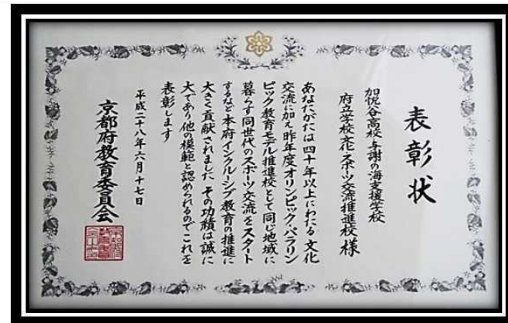 表彰状
加悦谷高校 与謝の海支援学校
府立学校文化・スポーツ交流推進校 様
あなたがたは四十年以上にわたる文化
交流に加え昨年度オリンピック・パラリン
ピック教育モデル推進校として同じ地域に
暮らす同世代のスポーツ交流をスタート
するなど本府インクルーシブ教育の推進に
大きく貢献されました その功績は誠に
大であり他の模範と認められるのでこれを
表彰します
平成二十八年六月十七日
京都府教育委員会